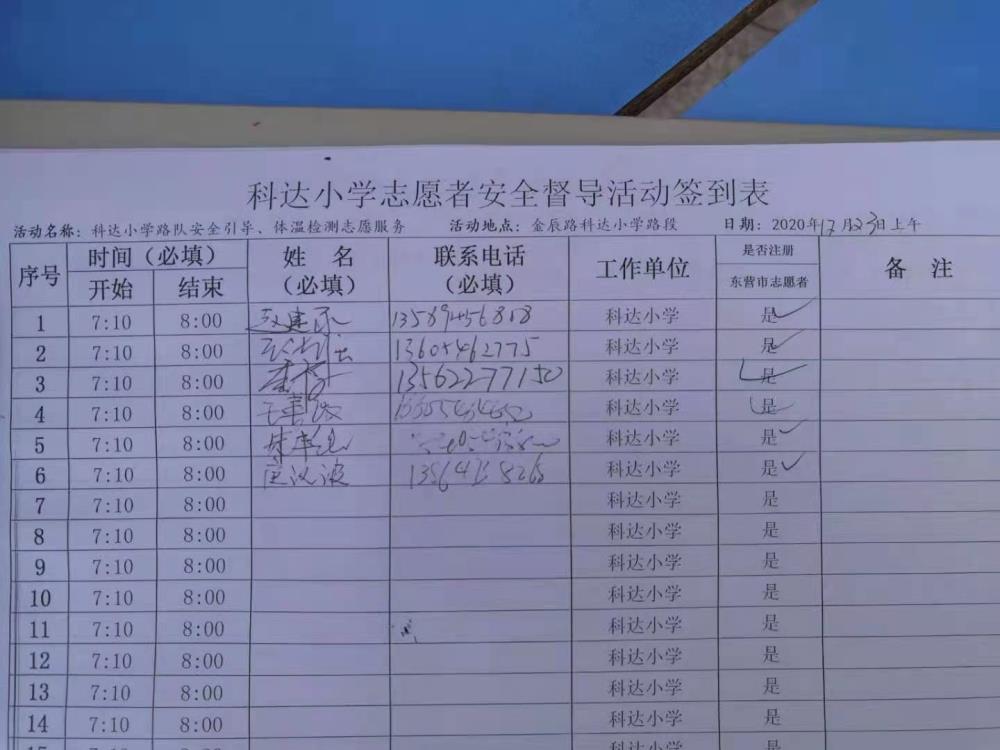 科达小学志愿者安全督导活动签到表
活动名称：科达小学路队安全引导、体温检测志愿服务 活动地点：金辰路科达小学路段 日期：2020年12月23日上午
序号 时间（必填） 姓 名 联系电话 工作单位 是否注册 备 注
开始 结束 （必填） （必填） 东营市志愿者
1 7:10 8:00 科达小学 是✓
2 7:10 8:00 13605462775 科达小学 是✓
3 7:10 8:00 13562277150 科达小学 是✓
4 7:10 8:00 科达小学 是✓
5 7:10 8:00 科达小学 是✓
6 7:10 8:00 科达小学 是✓
7 7:10 8:00 科达小学 是
8 7:10 8:00 科达小学 是
9 7:10 8:00 科达小学 是
10 7:10 8:00 科达小学 是
11 7:10 8:00 科达小学 是
12 7:10 8:00 科达小学 是
13 7:10 8:00 科达小学 是
14 7:10 8:00 科达小学 是